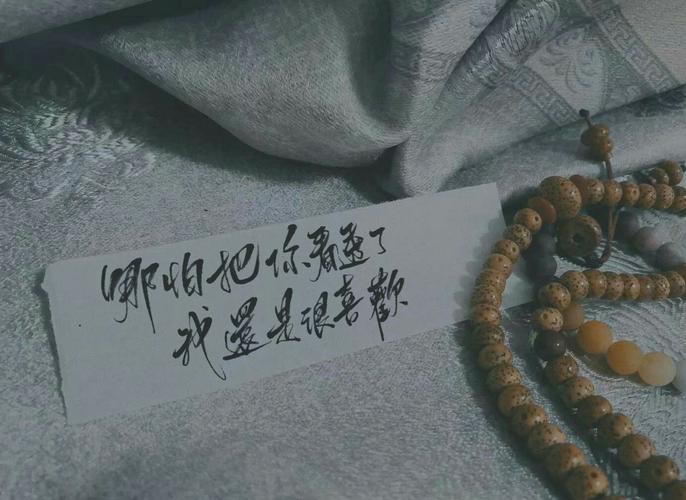 哪怕把你看透了
我還是很喜歡